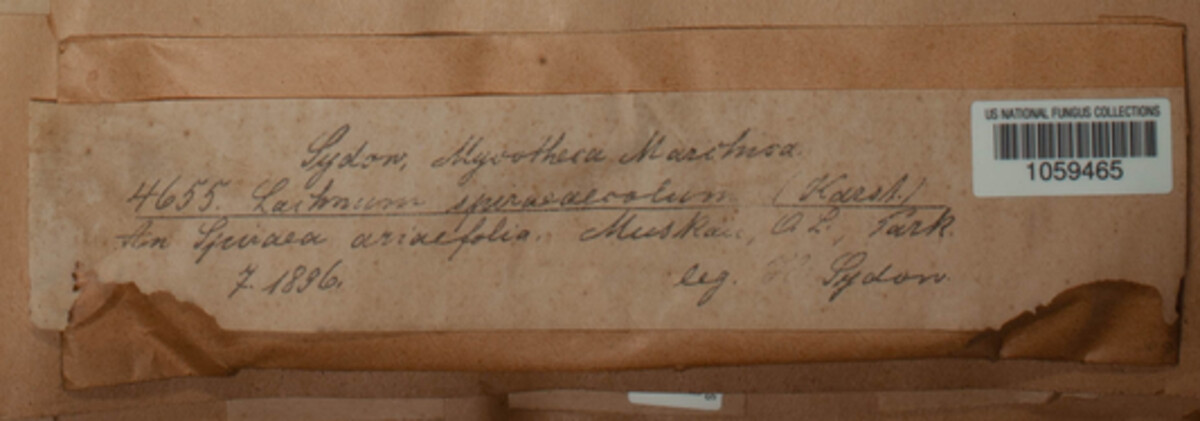 US NATIONAL FUNGUS COLLECTIONS
1059465
Sydow, Mycotheca Marchica.
4655. Lachnum spiraeaecolum (Karst.)
An Spiraea ariaefolia. Muskau, O.L., Park.
7. 1896.
leg. Sydow.